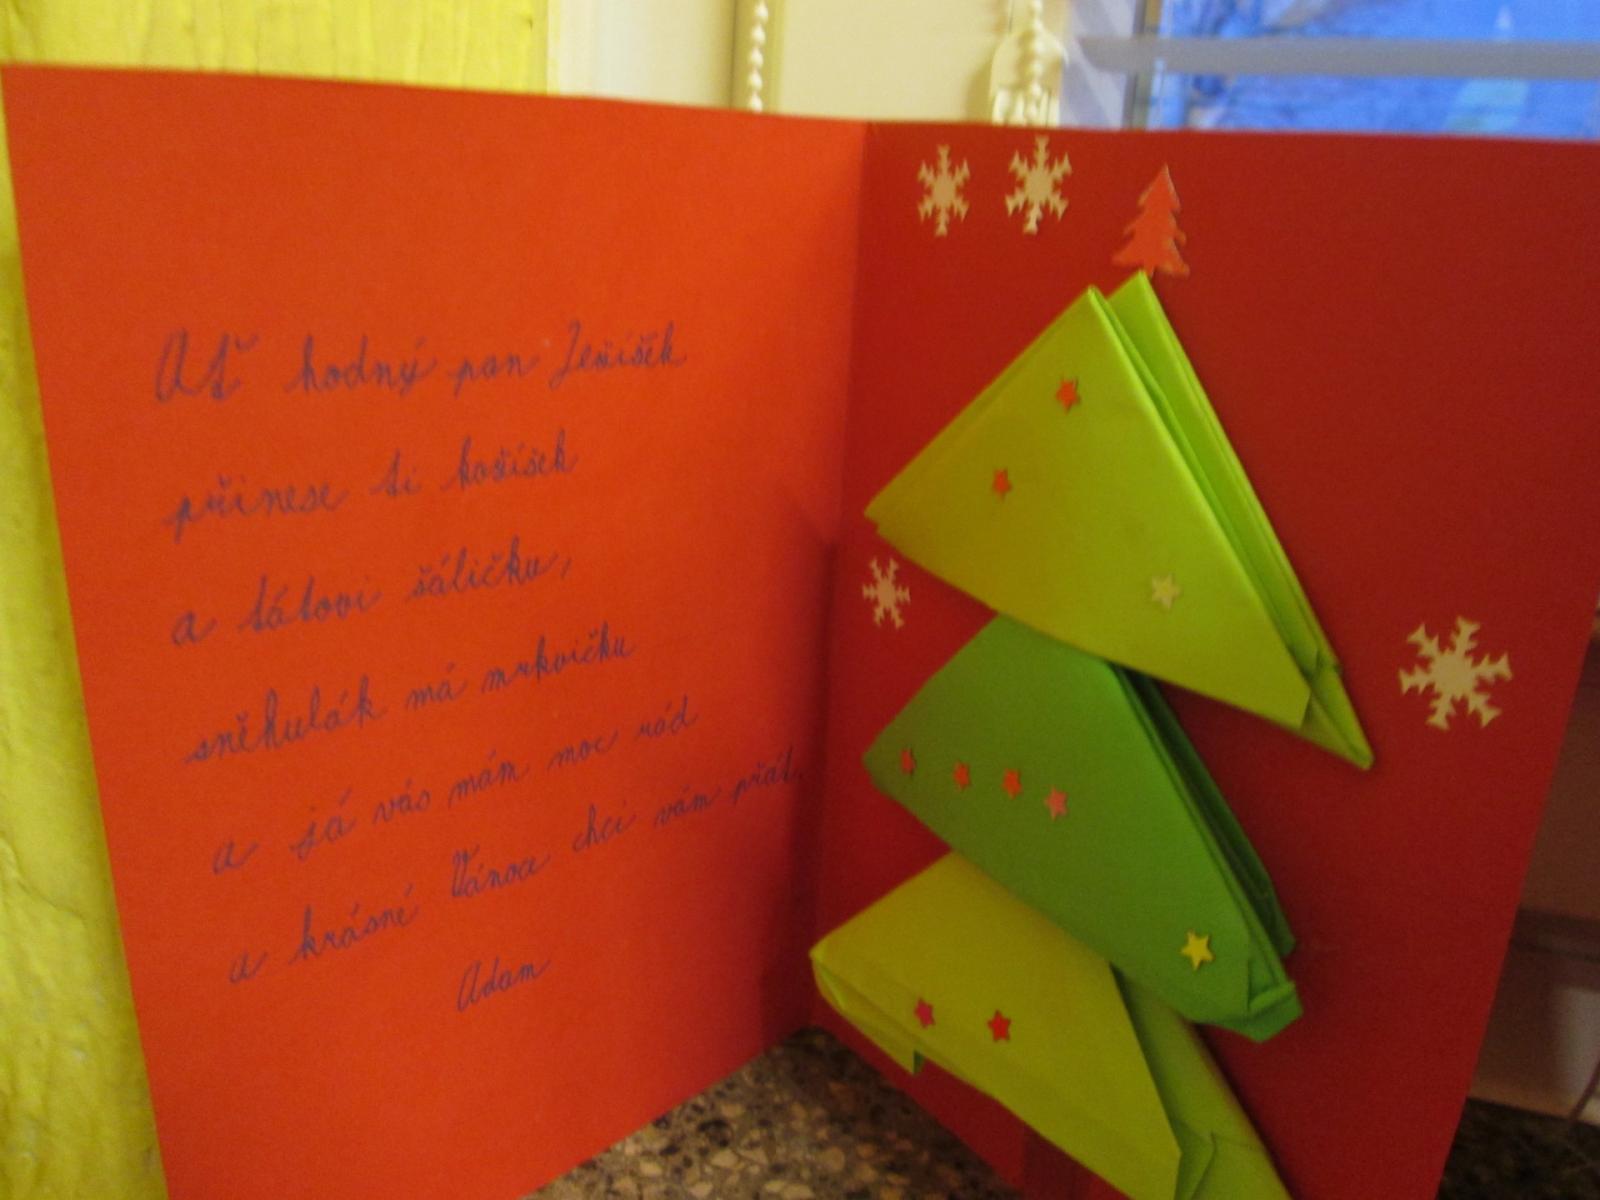 Ať hodný pan Ježíšek
přinese ti košíšek
a tátovi šáličku,
sněhulák má mrkvičku
a já vás mám moc rád
a krásné Vánoce chci vám přát.
Adam